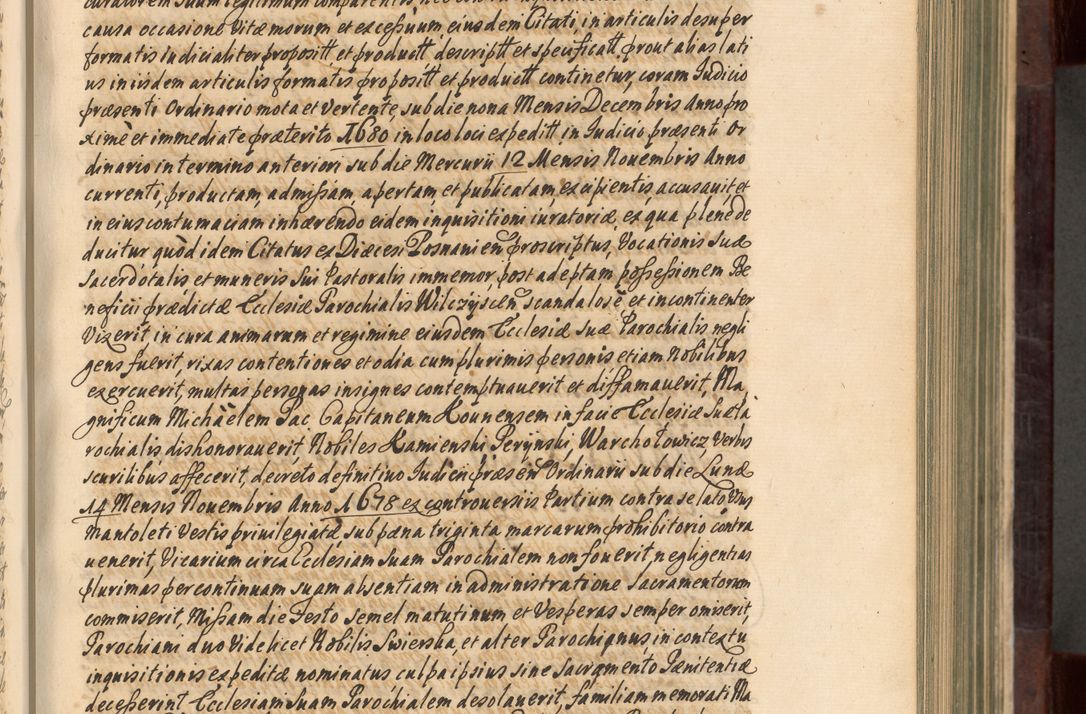 causa occasione Vitæ morum et excessuum, eiusdem Citati, in articulis desuper
formatis iudicialiter propositt et productt descriptt et specificatt, prout alias lati
us in iisdem articulis formatis propositt et productt continetur, coram Iudicio
præsenti Ordinario mota et Vertente, sub die nona Mensis Decembris Anno pro
ximè et immediate præterito 1680 in loco loci expeditt, in Iudicio præsenti Or
dinario in termino anteriori sub die Mercurii 12 Mensis Nouembris Anno
currenti, productam, admissam, apertam, et publicatam, excipientis, accusauit, et
in eius contumaciam inhærendo eidem inquisitioni iuratoriæ, ex qua plene de
ducitur quòd idem Citatus ex Diæcesi Posnanien proscriptus, Vocationis suæ
Sacerdotalis et muneris sui Pastoralis immemor, post adeptam possessionem Be
neficii prædictæ Ecclesiæ Parochialis Wilczyscen scandalosè et incontinenter
Vixerit, in cura animarum et regimine eiusdem Ecclesiæ suæ Parochialis negli
gens fuerit, rixas contentiones et odia cum plurimis personis etiam Nobilibus
exercuerit, multas personas insignes contemptuauerit et diffamauerit, Ma
gnificum Michàelem Sac Capitaneum Kounensem in facie Ecclesiæ suæ Pa
rochialis dishonorauerit Nobiles Kamienski Perynski, Warchołowicz, Verbis
scurilibus affecerit, decreto definitiuo Iudicii præsen Ordinarii sub die Lunæ
14 Mensis Nouembris Anno 1678 ex controuersiis Partium contra se lato Vsus
Mantoleti Vestis priuilegiatæ, sub pæna triginta marcarum prohibitorio contra
uenerit, Vicarium circa Ecclesiam suam Parochialem non fouerit, negligentias
plurimas per continuam suam absentiam in administratione Sacramentorum
commiserit, Missam die Festo semel matutinum et Vesperas semper omiserit,
Parochiani duo Videlicet Nobilis Swierska, et alter Parochianus in contextu
inquisitionis expeditæ nominatus culpa ipsius sine Sacramento Pænitentiæ
decesserint Ecclesiam suam Parochialem desolauerit, familiam memorati Ma